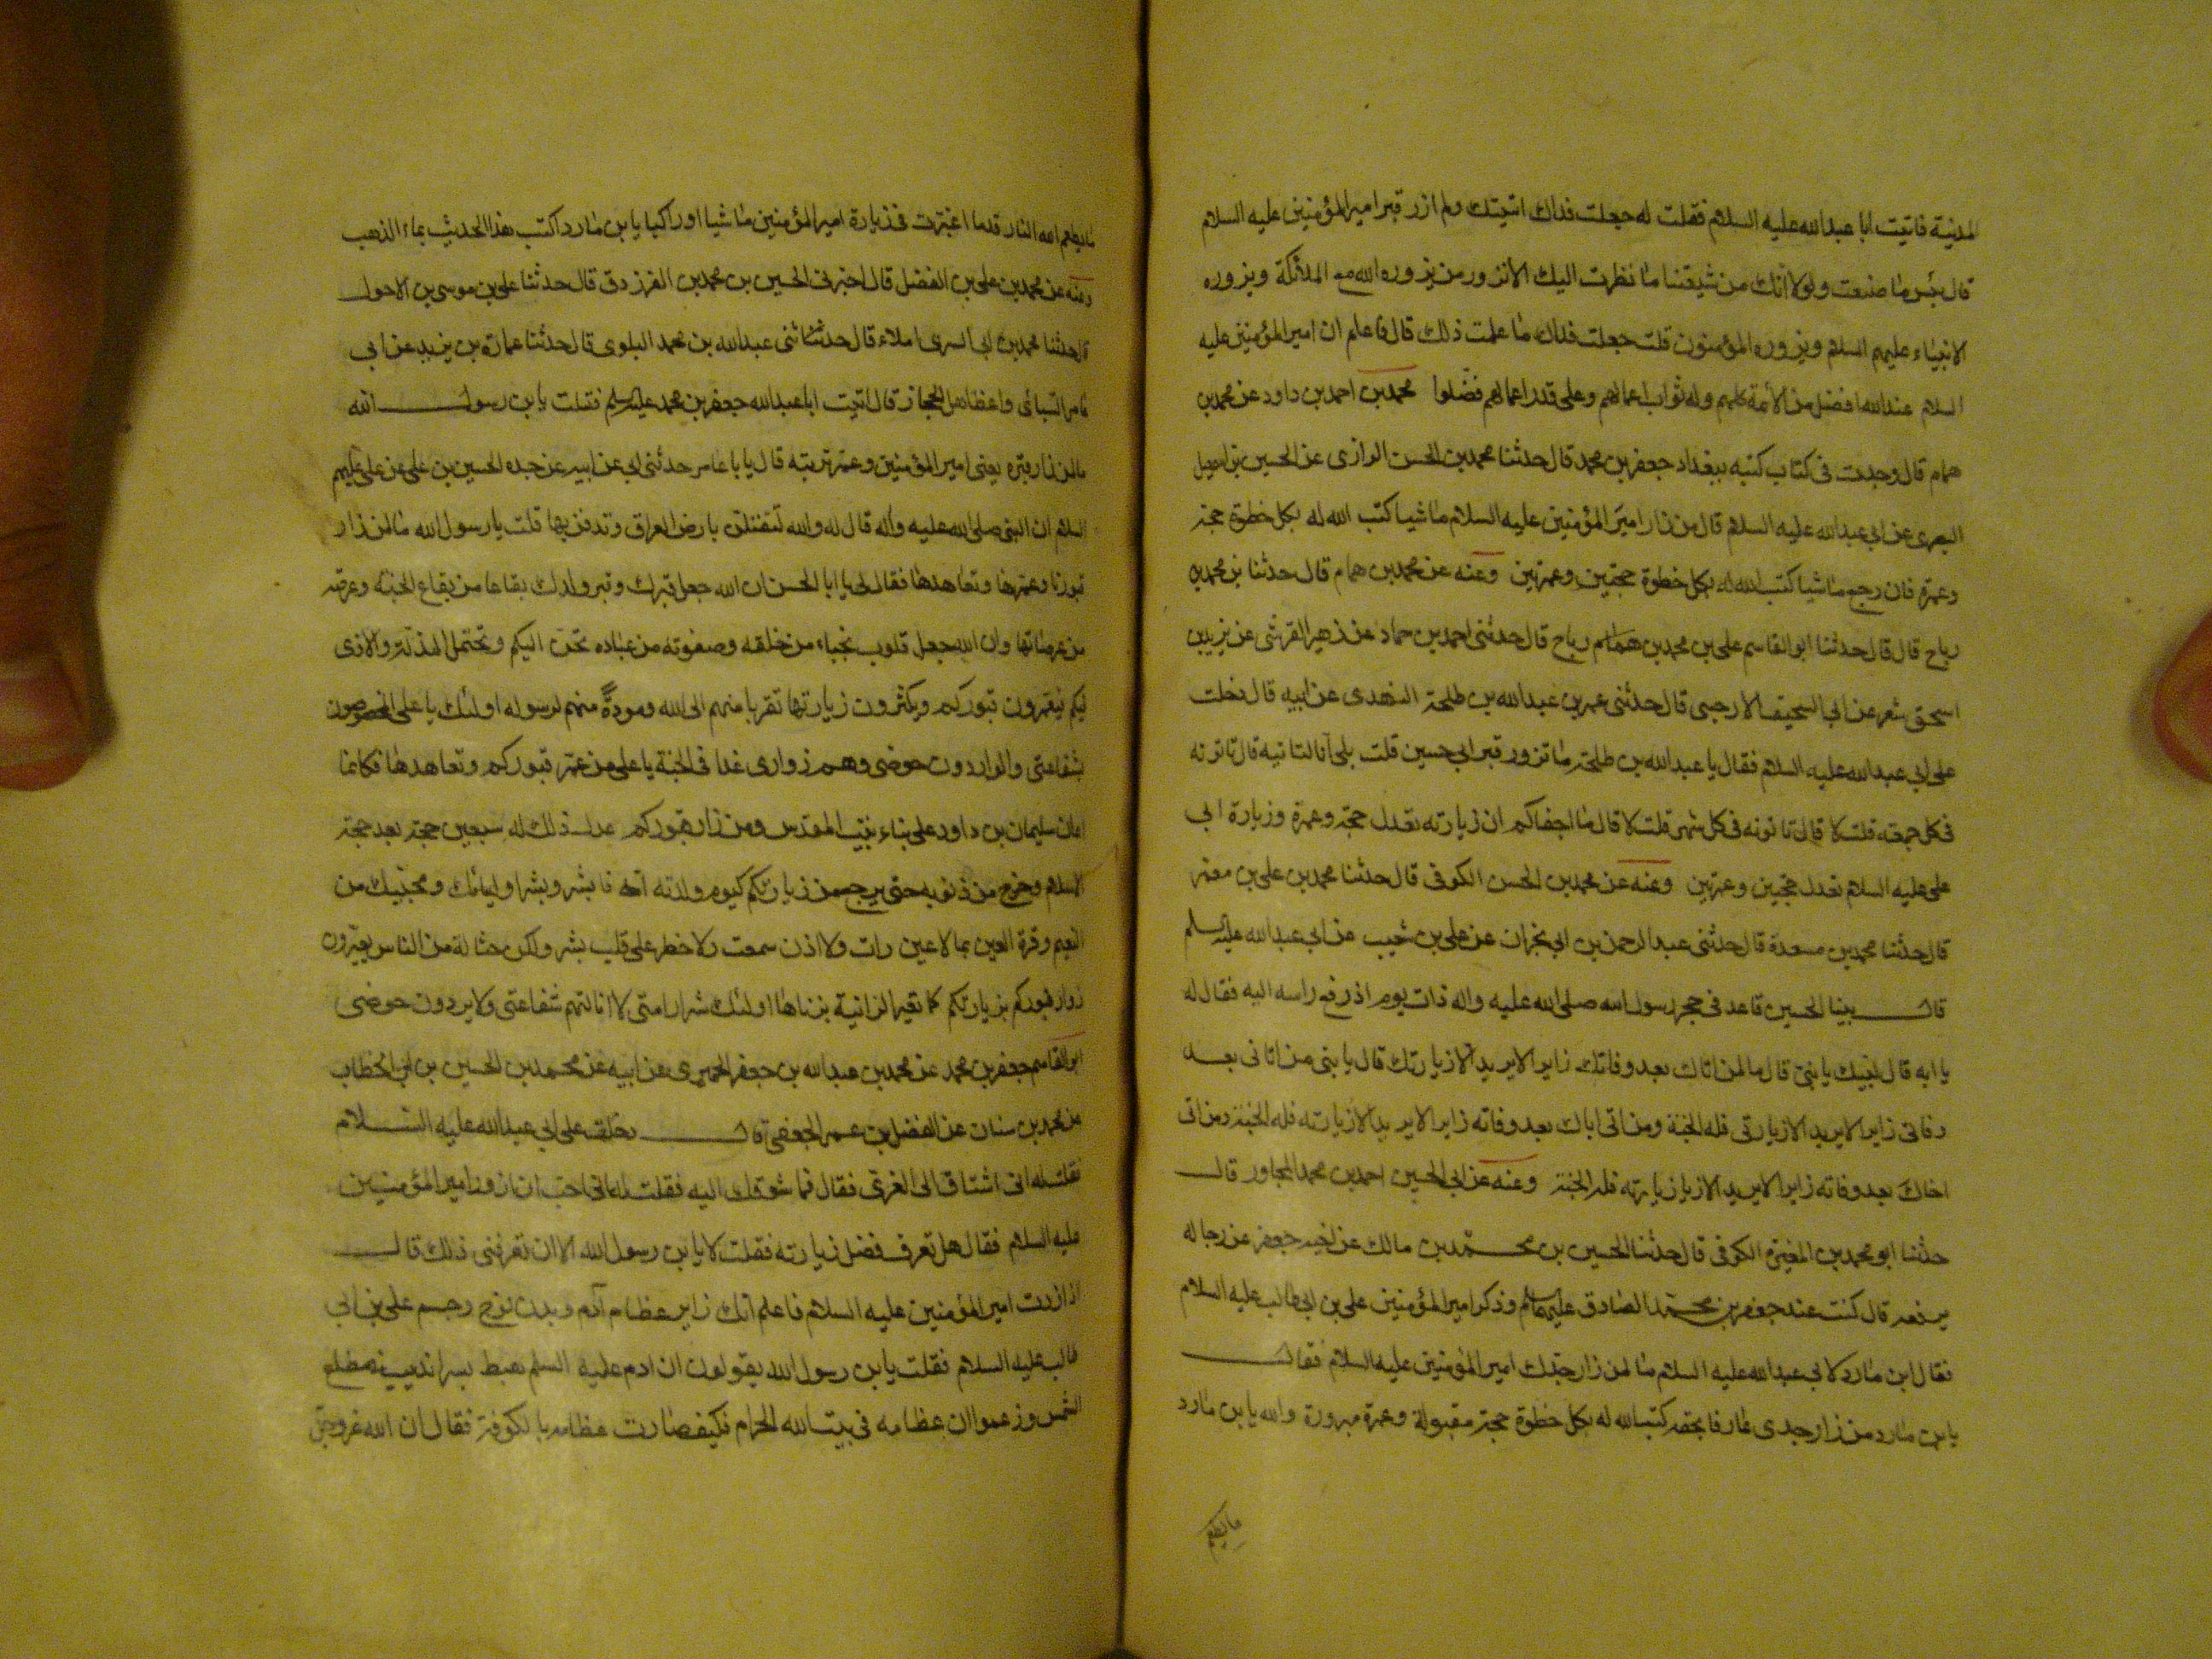 المدينة فاتيت ابا عبدالله عليه السلام فقلت له جعلت فداك اتيتك ولم ازر قبر امير المؤمنين عليه السلام
قال بئس ما صنعت ولولا انك من شيعتنا ما نظرت اليك الا تزور من يزوره الله مع الملائكة ويزوره
الانبياء عليهم السلام ويزوره المؤمنون قلت جعلت فداك ما علمت ذلك قال فاعلم ان امير المؤمنين عليه
السلام عندالله افضل من الائمة كلهم وله ثواب اعمالهم وعلى قدر اعمالهم فضلوا محمد بن احمد بن داود عن محمد بن
همام قال وجدت في كتاب كتبه ببغداد جعفر بن محمد قال حدثنا محمد بن الحسن الرازى عن الحسين بن اسمعيل
البصرى عن ابي عبدالله عليه السلام قال من زار امير المؤمنين عليه السلام ماشيا كتب الله له بكل خطوة حجة
وعمرة فان رجع ماشيا كتب الله له بكل خطوة حجتين وعمرتين وعنه عن محمد بن همام قال حدثنا بن محمد بن
رباح قال قال حدثنا ابوالقاسم على بن محمد بن رباح قال حدثنى احمد بن حماد عن زهير القرشى عن يزيد بن
اسحق شعر عن ابي السخيف الارجبى قال حدثنى عمر بن عبدالله بن طلحة النهدى عن ابيه قال دخلت
على ابي عبدالله عليه السلام فقال يا عبدالله بن طلحة ما تزور قبر ابي حسين قلت بلى انا لناتيه قال تاتونه
في كل جمعة قلت لا قال تاتونه في كل شهر قلت لا قال ما اجفاكم ان زيارته تعدل حجة وعمرة وزيارة ابي
على عليه السلام تعدل حجتين وعمرتين وعنه عن محمد بن الحسن الكوفي قال حدثنا محمد بن على بن معمر
قال حدثنا محمد بن مسعدة قال حدثنى عبدالرحمن بن ابي نجران عن على بن شعيب عن ابي عبدالله عليه السلم
قال بينا الحسين قاعد في حجر رسول الله صلى الله عليه واله ذات يوم اذ رفع راسه اليه فقال له
يا ابه قال لبيك يا بنى قال ما لمن اتاك بعد وفاتك زايرا لا يريد الا زيارتك قال يا بنى من اتانى بعد
وفاتى زايرا لا يريد الا زيارتى فله الجنة ومن اتى اباك بعد وفاته زايرا لا يريد الا زيارته فله الجنة ومن اتى
اخاك بعد وفاته زايرا لا يريد الا زيارته فله الجنة وعنه عن ابي الحسين احمد بن محمد المجاور قال
حدثنا ابو محمد بن المغيرة الكوفي قال حدثنا الحسين بن محمد بن مالك عن اخيه جعفر عن رجاله
يرفعه قال كنت عند جعفر بن محمد الصادق عليهما السلام وذكر امير المؤمنين على بن ابي طالب عليه السلام
فقال ابن مارد لابي عبدالله عليه السلام ما لمن زار جدك امير المؤمنين عليه السلام فقال
يا بن مارد من زار جدى عارفا بحقه كتب الله له بكل خطوة حجة مقبولة وعمرة مبرورة والله يا بن مارد
ما يطعم
ما يطعم الله النار قدما اغبرت في زيارة امير المؤمنين ماشيا او راكبا يا بن مارد اكتب هذا الحديث بماء الذهب
وعنه عن محمد بن على بن الفضل قال اخبرنى الحسين بن محمد بن الفرزدق قال حدثنا على بن موسى بن الاحول
قال حدثنا محمد بن ابي السرى املاء قال حدثنى عبدالله بن محمد البلوى قال حدثنا عمارة بن يزيد عن ابي
عامر التبانى واعظ اهل الحجاز قال اتيت ابا عبدالله جعفر بن محمد عليه السلم فقلت يا بن رسول الله
ما لمن زار قبره يعنى امير المؤمنين وعمر تربته قال يا با عامر حدثنى ابي عن ابيه عن جده الحسين بن على عن على عليهم
السلام ان النبى صلى الله عليه وآله قال له والله لتقتلن بارض العراق وتدفن بها قلت يا رسول الله ما لمن زار
قبورنا وعمرها وتعاهدها فقال لى يا ابا الحسن ان الله جعل قبرك وقبر ولدك بقاعا من بقاع الجنة وعرصة
من عرصاتها وان الله جعل قلوب نجباء من خلقه وصفوته من عباده تحن اليكم وتحتمل المذلة والاذى
فيكم فيعمرون قبوركم ويكثرون زيارتها تقربا منهم الى الله ومودة منهم لرسوله اولئك يا على المخصوصون
بشفاعتى والواردون حوضى وهم زوارى غدا في الجنة يا على من عمر قبوركم وتعاهدها فكانما
اعان سليمان بن داود على بناء بيت المقدس ومن زار قبوركم عدل ذلك له سبعين حجة بعد حجة
الاسلام وخرج من ذنوبه حتى يرجع من زيارتكم كيوم ولدته امه فابشر وبشر اوليائك ومحبيك من
النعيم وقرة العين بما لا عين رات ولا اذن سمعت ولا خطر على قلب بشر ولكن حثالة من الناس يعيرون
زوار قبوركم بزيارتكم كما تعير الزانية بزناها اولئك شرار امتى لا انالتهم شفاعتى ولا يردون حوضى
ابوالقاسم جعفر بن محمد عن محمد بن عبدالله بن جعفر الحميرى عن ابيه عن محمد بن الحسين بن ابي الخطاب
عن محمد بن سنان عن المفضل بن عمر الجعفى قال دخلت على ابي عبدالله عليه السلام
فقلت له انى اشتاق الى الغرى فقال فما شوقك اليه فقلت له انى احب ان ازور امير المؤمنين
عليه السلام فقال هل تعرف فضل زيارته فقلت لا يا بن رسول الله الا ان تعرفنى ذلك قال
اذا زرت امير المؤمنين عليه السلام فاعلم انك زاير عظام آدم وبدن نوح وجسم على بن ابي
طالب عليه السلام فقلت يا بن رسول الله يقولون ان ادم عليه السلم هبط بسرانديب في مطلع
الشمس وزعموا ان عظامه في بيت الله الحرام فكيف صارت عظامه بالكوفة فقال ان الله عزوجل